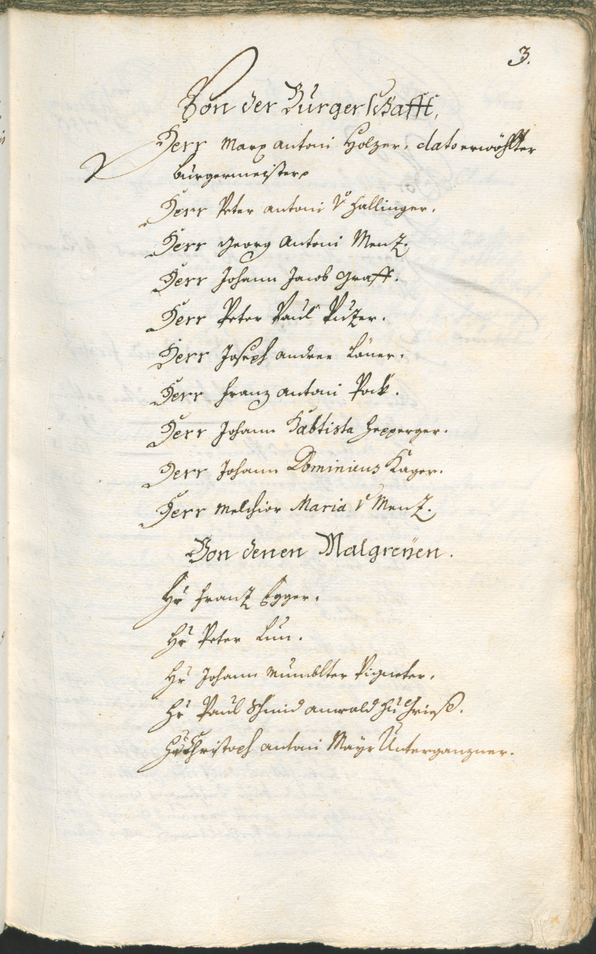 3.
Von der Burgerschafft.
Herr Marx Antoni Holzer, dato erwöhlter
burgermeister
Herr Peter Antoni v Hallinger.
Herr Georg Antoni Menz.
Herr Johann Jacob Graff.
Herr Peter Paul Puzer.
Herr Joseph Andree Laner.
Herr Franz Antoni Pock.
Herr Johann Babtista Hepperger.
Herr Johann Dominicus Kager.
Herr Melchior Maria v Menz.
Von denen Malgreÿen.
Hr Franz Egger.
Hr Peter Lun.
Hr Johann Mumblter Pigneter.
Hr Paul Schmid anwald zu Grieß.
Hr Christoph Antoni Mayr Unterganzner.